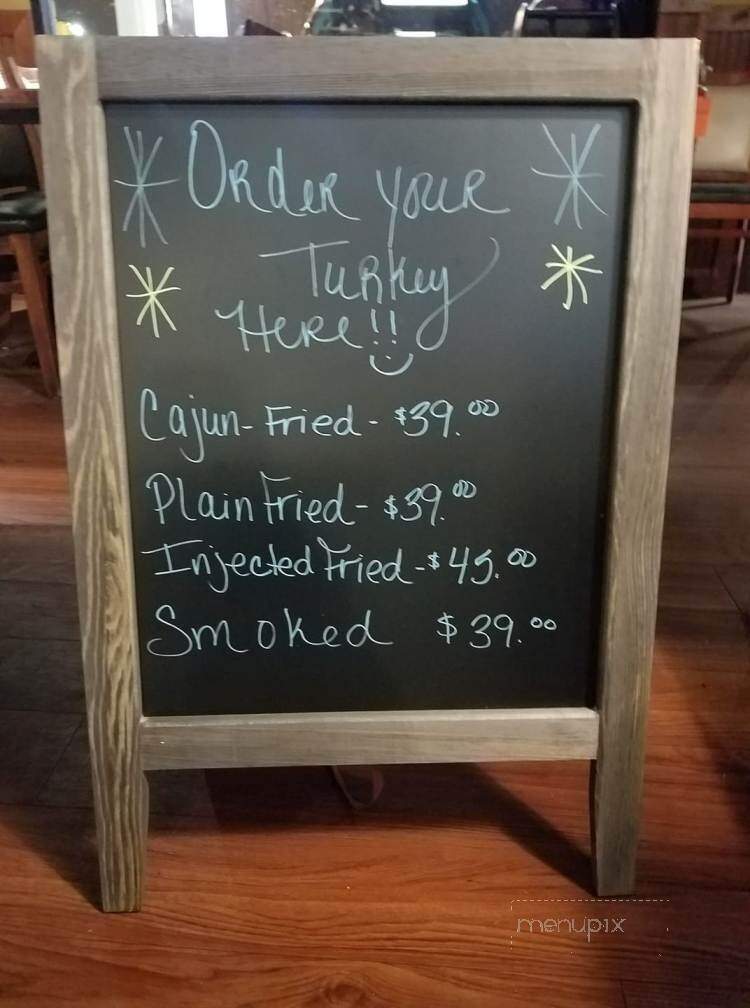 Order your
Turkey
Here!!
Cajun-Fried- $39.00
Plain Fried- $39.00
Injected Fried-$45.00
Smoked $39.00
menupix